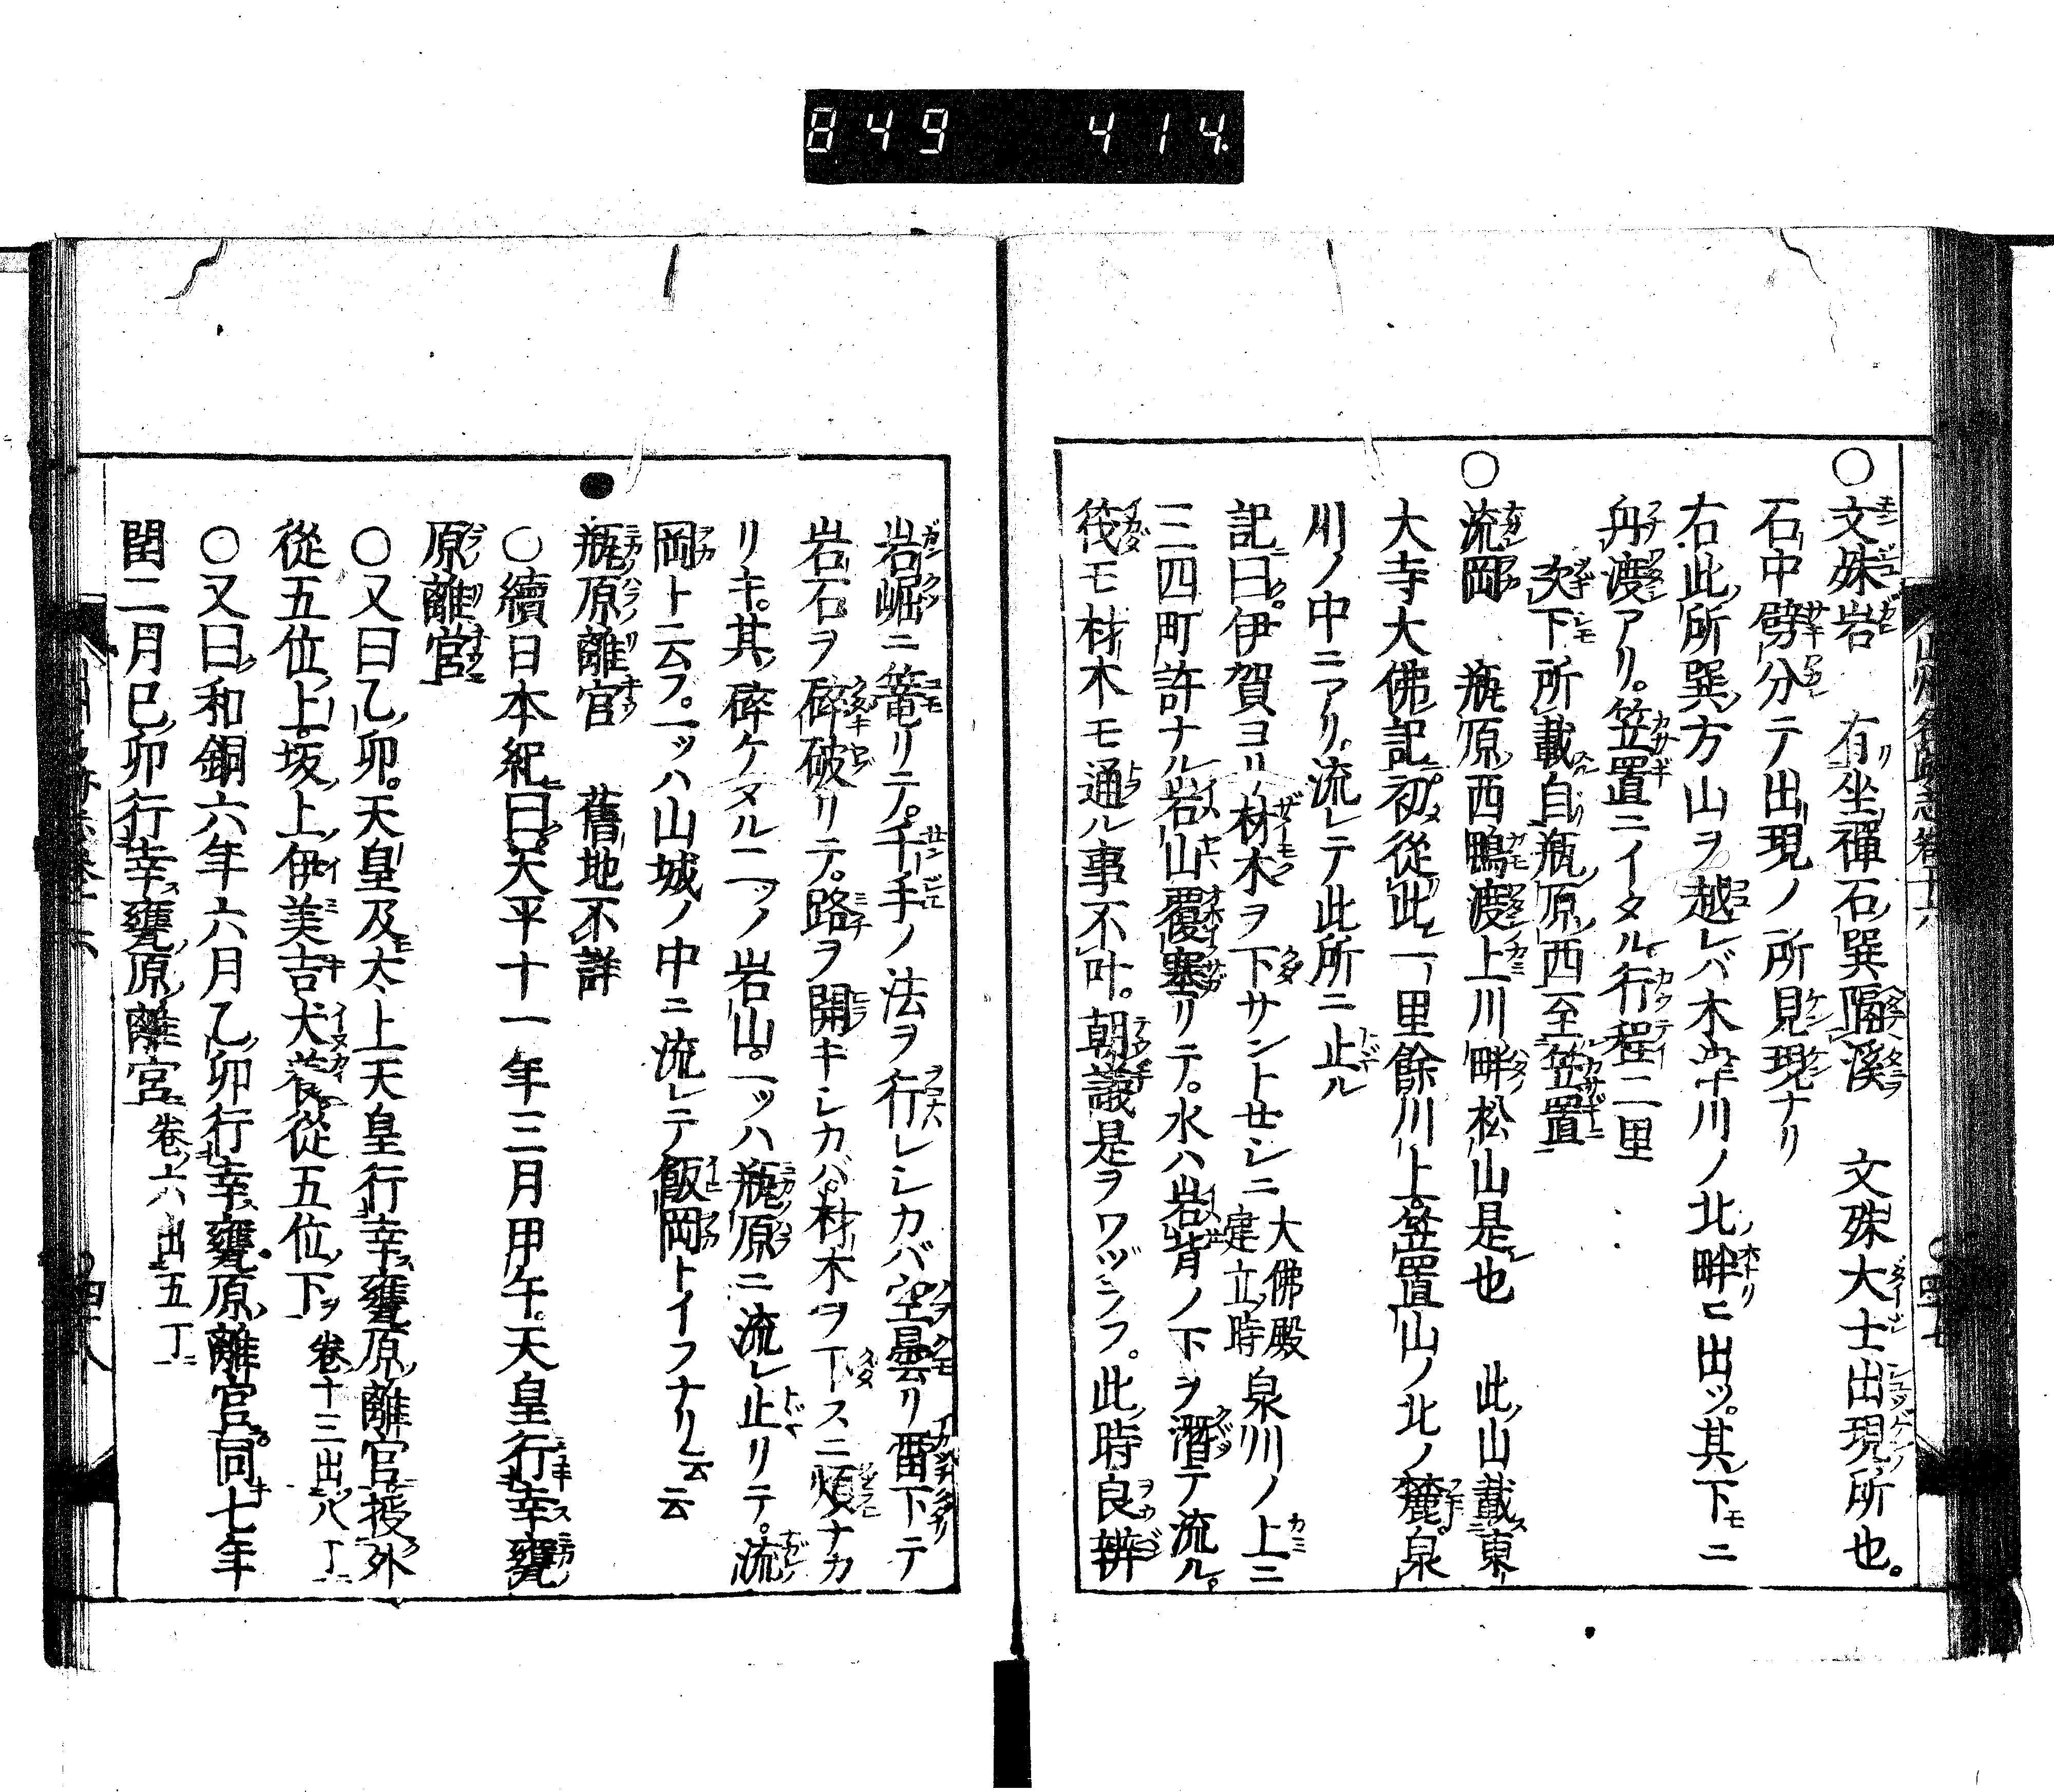 849 414
○文殊岩 有坐禪石巽隔溪 文殊大士出現所也。
石中劈分テ出現ノ所見現ナリ
右此所巽方山ヲ越レバ木津川ノ北ノ畔ニ出ツ。其下ニ
舟渡アリ。笠置ニイタル行程二里
次下所載自瓶原西至笠置
○流岡 瓶原西鴨渡上川畔松山是也 此山載東
大寺大佛記初從此一里餘川上。笠置山ノ北ノ麓泉
川ノ中ニアリ。流レテ此所ニ止ル
記曰。伊賀ヨリ材木ヲ下サントせシニ大佛殿建立時泉川ノ上ニ
三四町許ナル岩山覆塞リテ。水ハ岩背ノ下ヲ潛テ流ル。
筏モ材木モ通ル事不叶。朝議是ヲワヅラフ。此時良辨
岩崛ニ篭リテ。千手ノ法ヲ行レシカバ空曇リ雷下テ
岩石ヲ碎破リテ。路ヲ開キシカバ。材木ヲ下スニ煩ナカ
リキ。其碎ケタル二ツノ岩山。一ツハ瓶原ニ流レ止リテ。流
岡ト云フ。一ツハ山城ノ中ニ流レテ飯岡トイフナリ云云
●瓶原離宮 舊地不詳
○續日本紀曰。天平十一年三月甲午。天皇行幸甕
原離宮
○又曰乙卯。天皇及太上天皇行幸甕原離宮授外
從五位上。坂上伊美吉犬養從五位下ヲ卷十三出八丁
○又曰和銅六年六月乙卯行幸甕原離宮。同七年
閏二月己卯行幸甕原離宮卷六出五丁